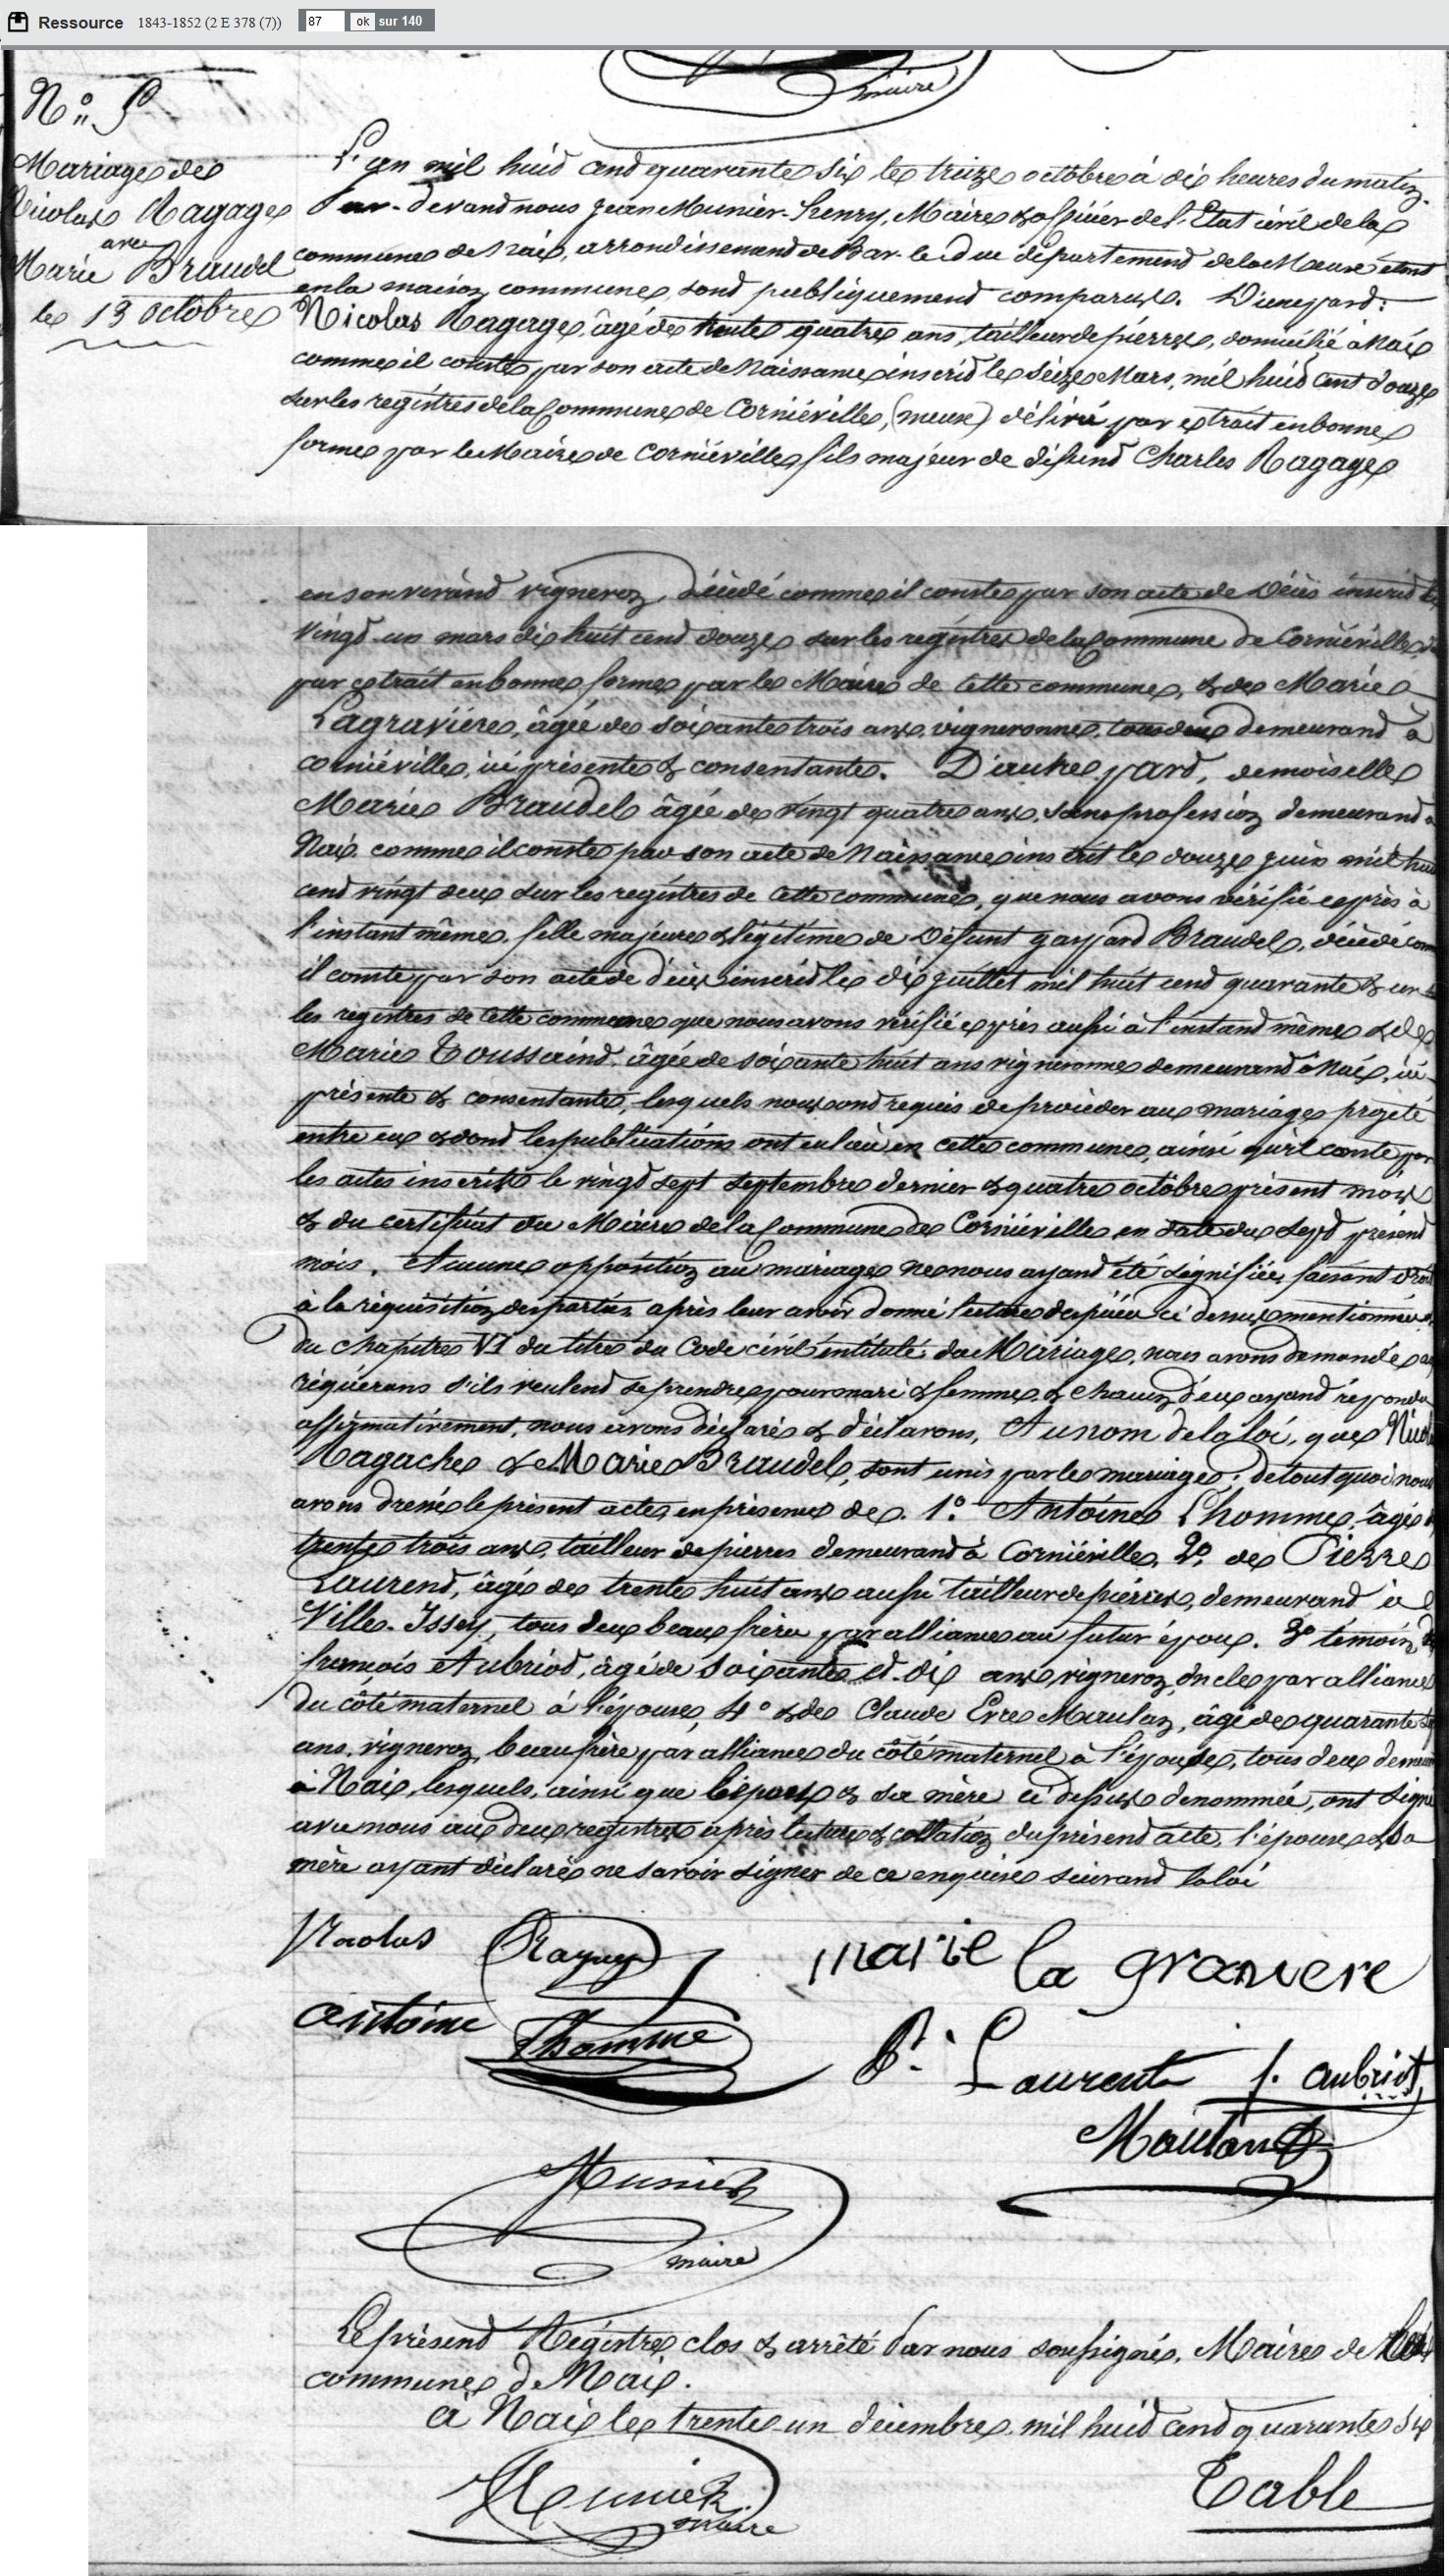 Ressource 1843-1852 (2 E 378 (7)) 87 ok sur 140
maire
N° 5
Mariage de
Nicolas Ragage
avec
Marie Braudel
le 13 octobre
L'an mil huid cend quarante six le treize octobre à dix heures du matin
Par-devand nous Jean Munier-henry, Maire & officier de l'Etat civil de la
commune de Naix, arrondissemend de Bar-le-duc départemend de la Meuse étant
en la maison commune, sond publiquemend comparus. D'une pard:
Nicolas Ragage, âgé de trente quatre ans, tailleur de pierres, domicilié à Naix
comme il conste par son acte de Naissance inscrid le seize Mars, mil huid cent douze
sur les registres de la Commune de Corniéville, (meuse) délivré par extrait en bonne
forme par le Maire de Corniéville, fils majeur de défund Charles Ragage
en son vivand vigneron, décédé comme il conste par son acte de Décès inscrid le
vingd-un mars dix huit cend douze sur les registres de la Commune de Corniéville,
par extrait en bonne forme par le Maire de cette commune, & de Marie
Lagravière, âgée de soixante trois ans, vigneronne, tous deux demeurand à
corniéville, ici présente & consentante. D'autre pard, demoiselle
Marie Braudel âgée de vingt quatre ans, sans profession demeurand à
Naix comme il conste par son acte de Naissance inscrit le douze juin mil huit
cend vingt deux sur les registres de cette commune, que nous avons vérifié exprès à
l'instant même, fille majeure & légitime de Défunt gaspard Braudel, décédé comme
il conste par son acte de décès inscrid le dix juillet mil huit cend quarante & un
les registres de cette commune que nous avons vérifié exprès aussi à l'instand même & de
Marie Toussaind, âgée de soixante huit ans vigneronne demeurand à Naix, ici
présente & consentante, lesquels nous ond requis de procéder au mariage projeté
entre eux & dond les publications ont eu lieu en cette commune, ainsi qu'il conste par
les actes inscrits le vingd sept septembre dernier & quatre octobre présent mois
& du certificat du Maire de la Commune de Corniéville en date du sepd présend
mois. Aucune opposition au mariage ne nous ayand été signifiée, faisant droit
à la réquisition des parties, après leur avoir donné lecture des pièces ci dessus mentionnées
du chapitre VI du titre du Code civil intitulé du Mariage, nous avons demandé aux
réquérans s'ils veulend se prendre pour mari & femme, & chacun d'eux ayand répondu
affirmativement, nous avons déclaré & déclarons, Au nom de la loi, que Nicolas
Ragache & Marie Braudel, sont unis par le mariage; de tout quoi nous
avons dressé le présent acte, en présence de. 1° Antoine Lhomme, âgé de
trente trois ans, tailleur de pierres demeurand à Corniéville, 2° de Pierre
Laurend, âgé de trente huit ans aussi tailleur de pierres, demeurand à
Ville-Issey, tous deux beaux frères par alliance au futur époux. 3° témoin, de
françois Aubriod, âgé de soixante et dix ans, vigneron, oncle par alliance
du côté maternel à l'épouse, 4° & de Claude Evre Maulan, âgé de quarante
ans, vigneron, beau frère par alliance du côté maternel à l'épouse, tous deux demeurand
à Naix, lesquels, ainsi que l'époux & sa mère ci dessus denommée, ont signé
avec nous aux deux registres après lecture & collation du présend acte, l'épouse & sa
mère ayant déclaré ne savoir signer de ce enquise suivand la loi
Nicolas Ragage marie la gravere
antoine Lhomme P. Laurent f. aubriot
Moulant
Munier
maire
Le présend Registre clos & arrêté Par nous soussigné, Maire de
commune de Naix.
à Naix le trente-un décembre mil huid cend quarante six
Munier Table
maire